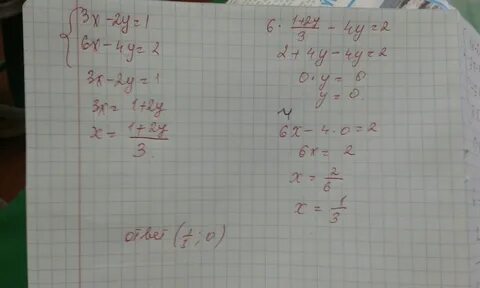 3x-2y=1
6x-4y=2
3x-2y=1
3x=1+2y
x=\frac{1+2y}{3}
6·\frac{1+2y}{3}-4y=2
2+4y-4y=2
0·y=0
y=0.
6x-4·0=2
6x=2
x=\frac{2}{6}
x=\frac{1}{3}
ответ (\frac{1}{3};0)